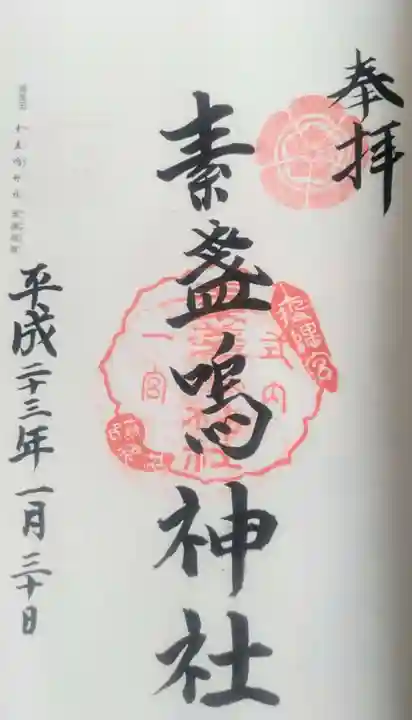 奉拝
素盞嗚神社
平成二十三年一月三十日
式内
一宮